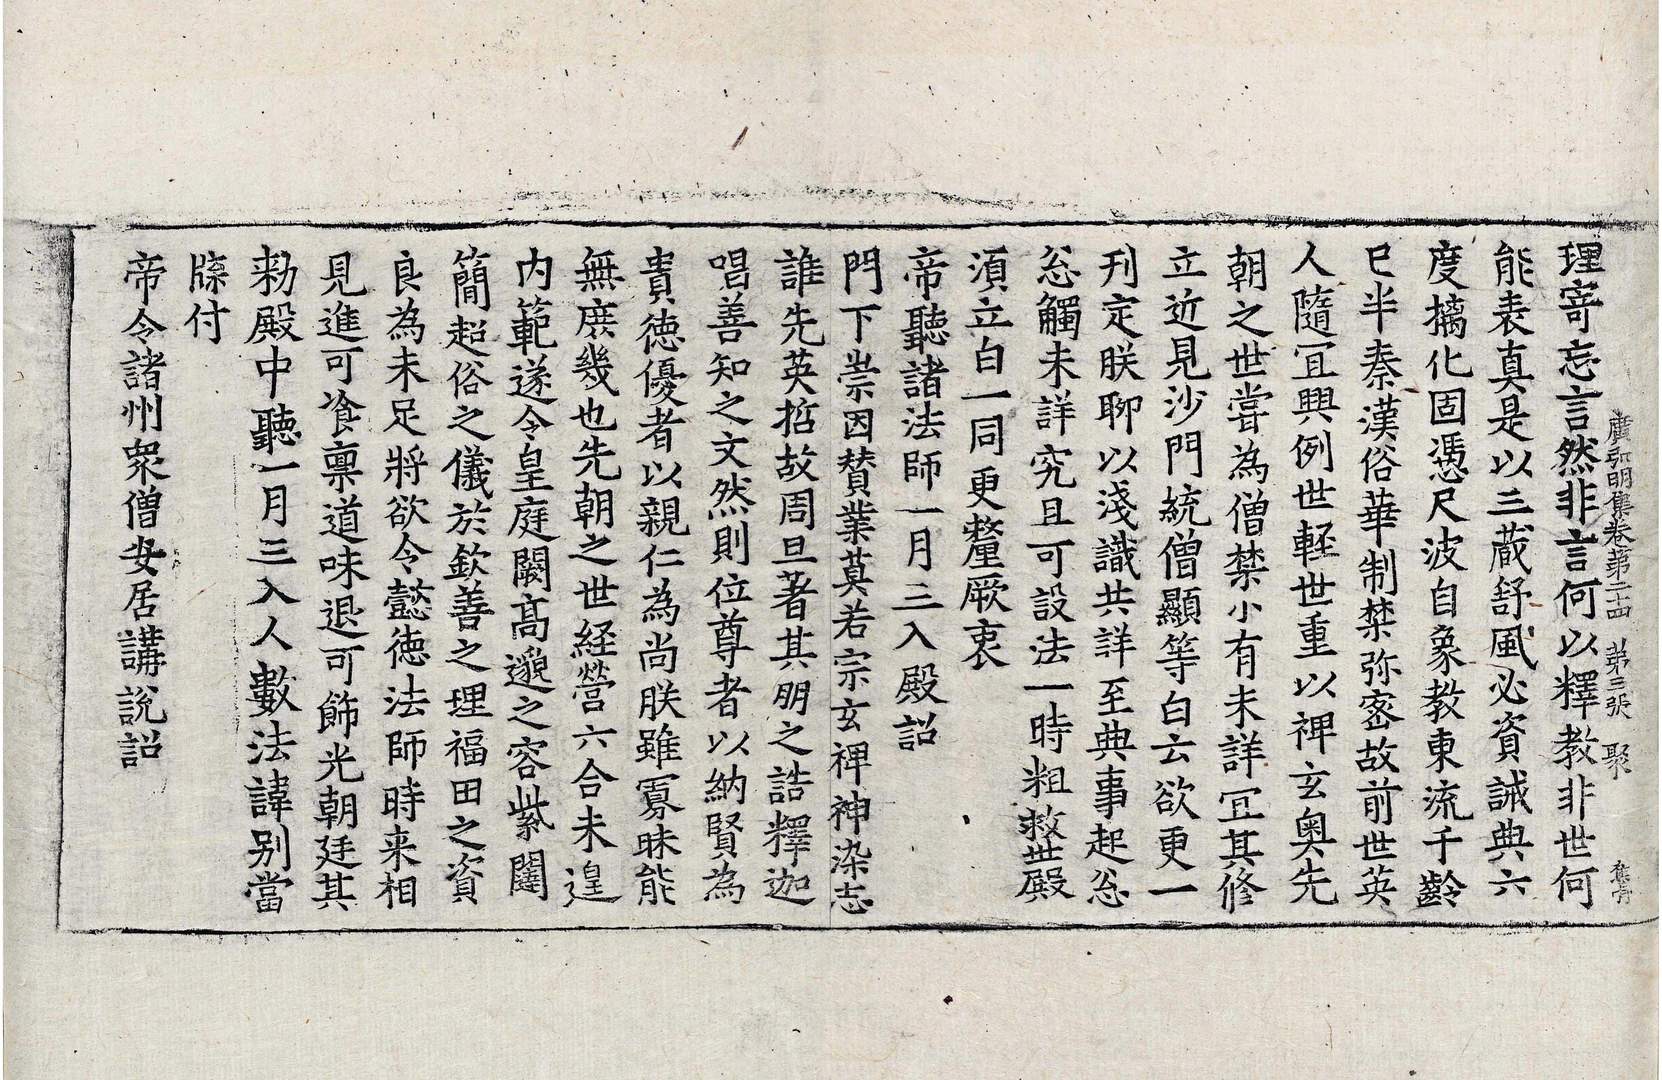 廣弘明集卷第二十四　第三張　聚
理寄忘言然非言何以釋教非世何
能表真是以三藏舒風必資誡典六
度摛化固憑尺波自象教東流千齡
已半秦漢俗華制禁弥密故前世英
人隨宜興例世輕世重以裨玄奧先
朝之世嘗為僧禁小有未詳宜其修
立近見沙門統僧顯等白云欲更一
刊定朕聊以淺識共詳至典事起忩
忩觸未詳究且可設法一時粗救世殿
湏立白一同更釐厥衷
帝聽諸法師一月三入殿詔
門下崇因賛業莫若宗玄裨神染志
誰先英哲故周旦著其朋之誥釋迦
唱善知之文然則位尊者以納賢為
貴徳優者以親仁為尚朕雖寡昧能
無庶幾也先朝之世経營六合未遑
内範遂令皇庭闕髙邈之容紫闥
簡超俗之儀於欽善之理福田之資
良為未足將欲令懿徳法師時来相
見進可飡禀道味退可飾光朝廷其
勑殿中聽一月三入人數法諱别當
牒付
帝令諸州衆僧安居講說詔